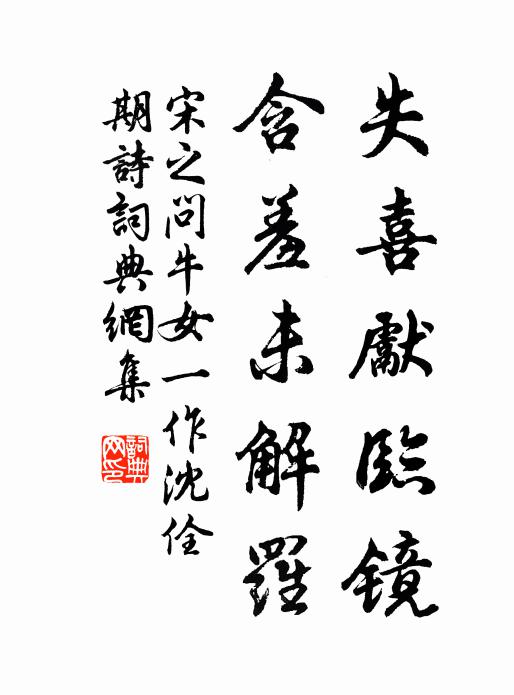 失喜獻臨鏡
含羞未解羅
宋之問牛女一作沈佺
期詩詞典網集
詞典
网印